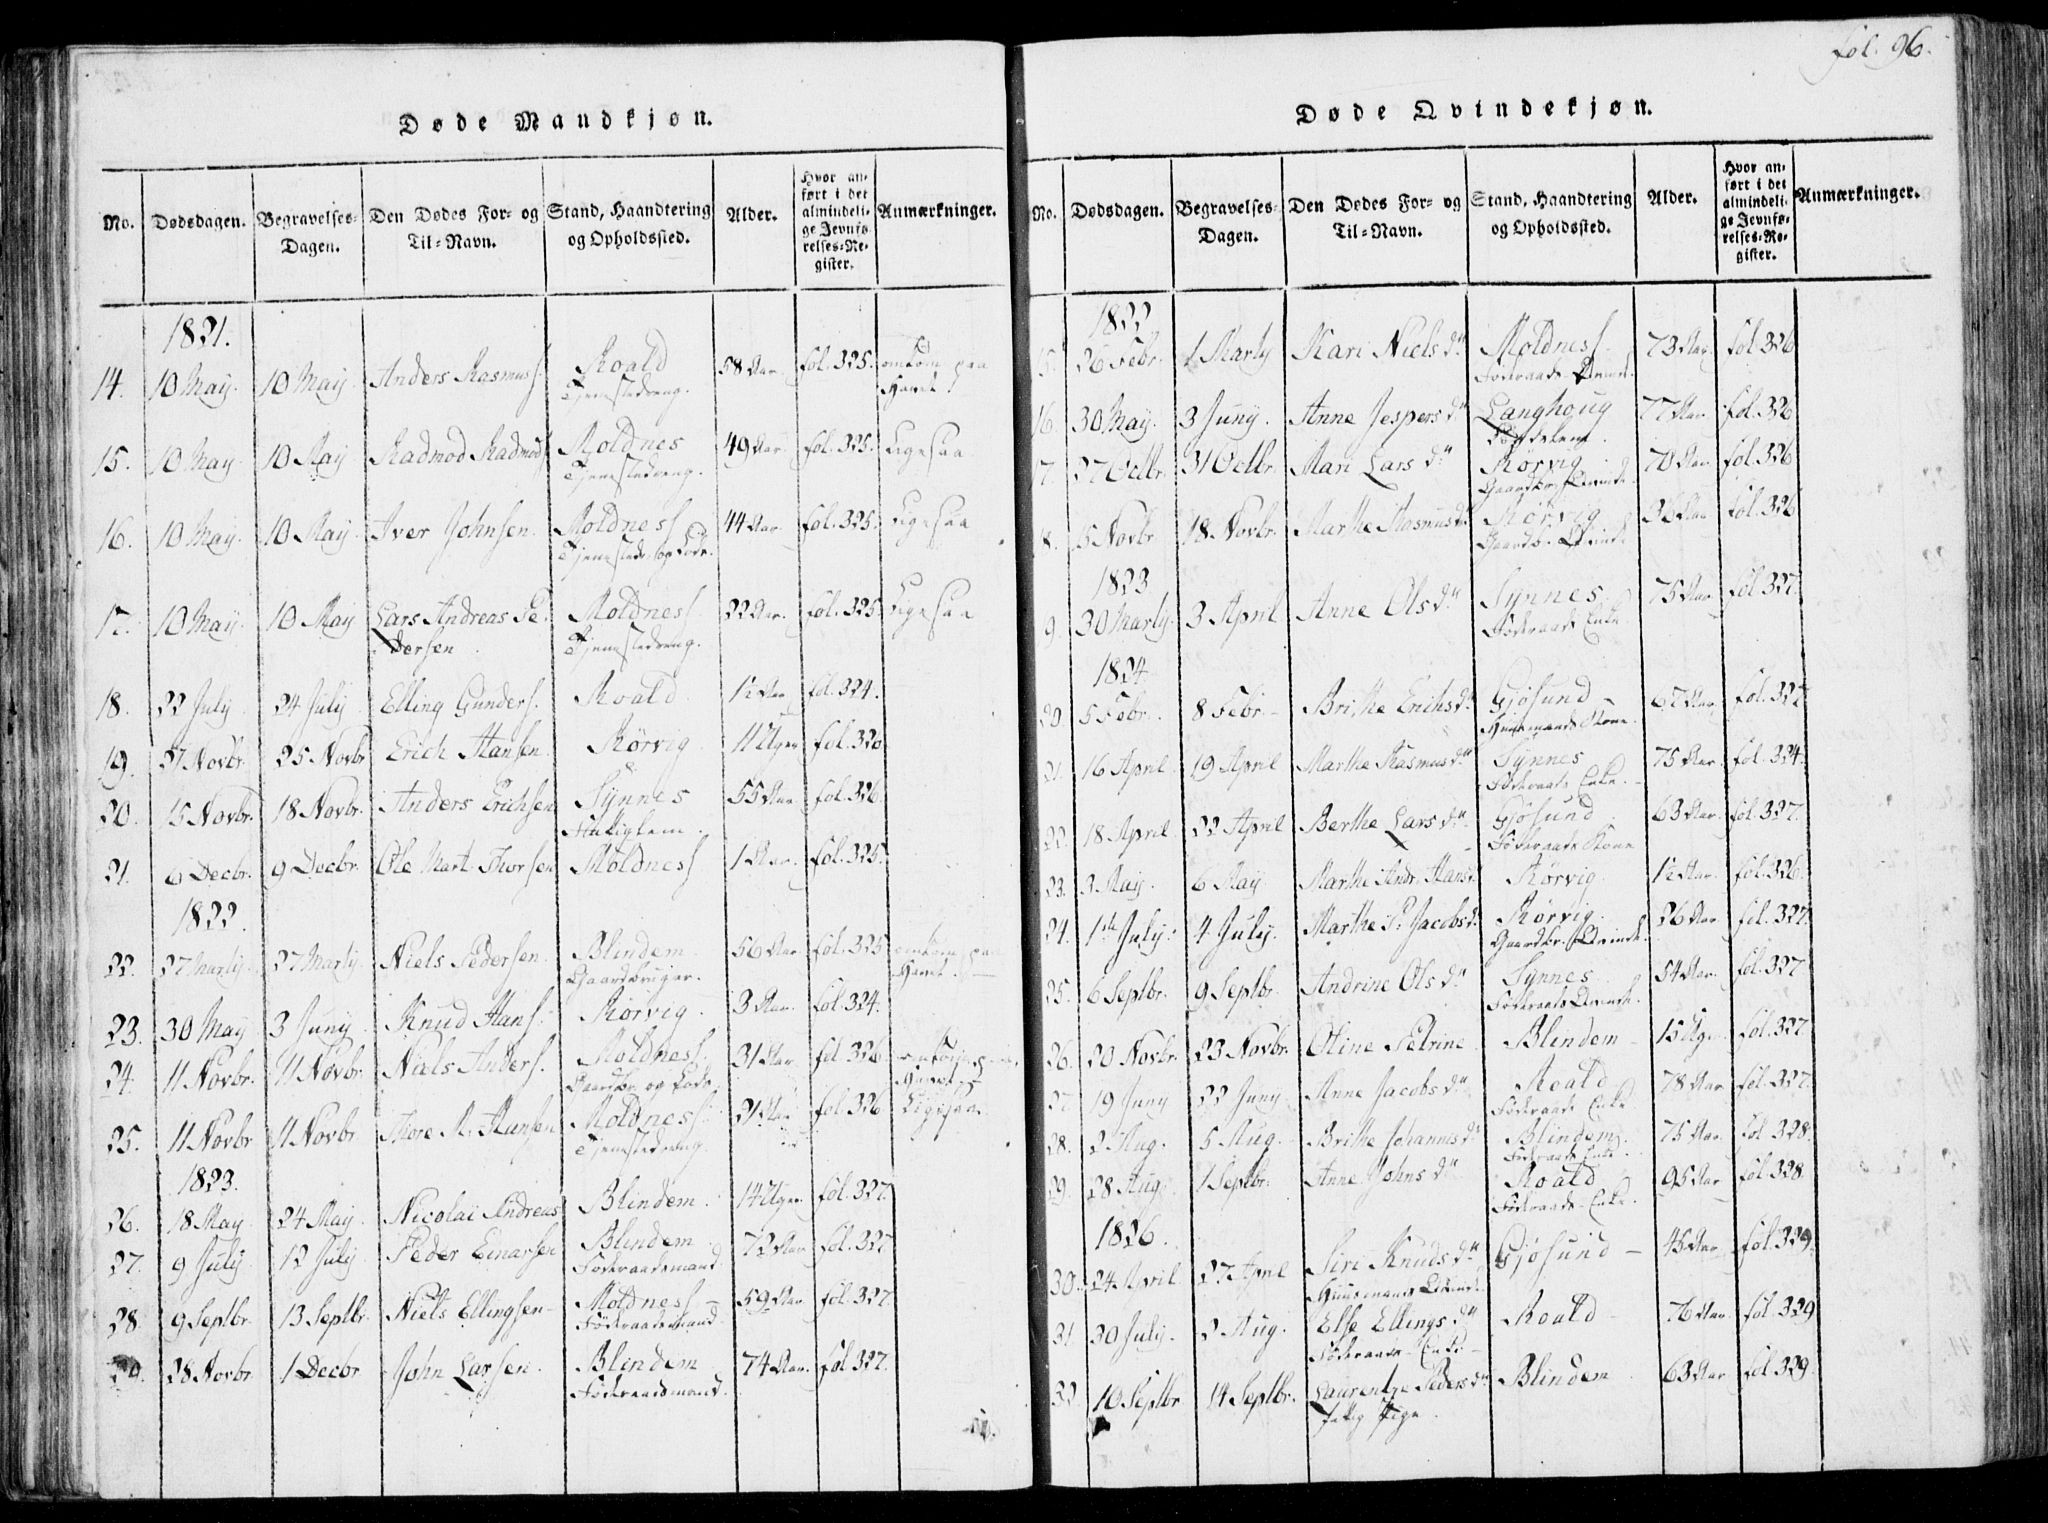 fol. 96.
Døde Mandkjøn.
No. Dødsdagen. Begravelses-Dagen. Den Dødes For- og Til-Navn. Stand, Haandtering og Opholdssted. Alder. Hvor anført i det almindelige Jevnførelses-Register. Anmærkninger.
1821.
14. 10 May. 10 May. Anders Rasmuss. Roald 58 Aar. fol. 325. omkom paa
Tjenestedreng. Havet
15. 10 May 10 May Radmod Radmods. Moldnes 49 Aar. fol. 325. Ligesaa
Tjenestedreng.
16. 10 May. 10 May. Iver Johnsen. Moldness 44 Aar fol. 325. Ligesaa
17. 10 May. 10 May Lars Andreas Pe- Moldness 22 Aar. fol. 325. Ligesaa
dersen. Tjenestedreng.
18. 22 July 24 July Elling Gunders. Roald 1½ Aar fol. 324.
19. 21 Novbr. 25 Novbr Erich Hansen. Rörvig 11 Uger fol. 320
20. 15 Novbr. 18 Novbr. Anders Erichsen Synnes 55 Aar fol. 326.
21. 6 Decbr. 9 Decbr. Ole Mart. Thorsen Moldness 1 Aar. fol. 325.
1822.
22. 27 Marty. 27 Marty. Niels Pedersen. Blindem 56 Aar fol. 325 omkom paa
Gaardbruger. Havet.
23. 30 May 3 Juny. Knud Hans. Rörvig 3 Aar. fol. 324.
24. 11 Novbr. 11 Novbr. Niels Anders. Moldness. 31 Aar fol. 326.
Gaardbr. og Lods. Havet
25. 11 Novbr 11 Novbr Thore M. Hansen Moldness. 21 Aar fol. 326 Ligesaa
Tjenestedreng.
1823.
26. 18 May 24 May. Nicolai Andreas Blindem 14 Uger fol. 327.
27. 9 July 12 July. Peder Einarsen Blindem 72 Aar fol. 327
Föderaadsmand
28. 9 Septbr. 13 Septbr. Niels Ellingsen Moldness 59 Aar fol. 327
Föderaadsmand
29. 28 Novbr 1 Decbr John Larsen. Blindem 74 Aar. fol. 327.
Föderaadsmand.
Døde Qvindekjøn.
No. Dødsdagen. Begravelses-Dagen. Den Dødes For- og Til-Navn. Stand, Haandtering og Opholdssted. Alder. Hvor anført i det almindelige Jevnførelses-Register. Anmærkninger.
1822
15. 26 Febr. 1 Marty Kari Nielsdr. Moldness 73 Aar. fol 326
Föderaads Qvinde.
16. 30 May. 3 Juny. Anne Jespersdr. Langhoug 77 Aar. fol. 326
17. 27 Octbr. 31 Octbr. Mari Larsdr. Rörvig 70 Aar fol. 326
Gaardbr. Qvinde
18. 5 Novbr 18 Novbr. Marthe Rasmusdr. Rörvig 36 Aar fol. 326
Gaardbr. Qvinde
1823
9. 30 Marty. 3 April Anne Olsdr. Synnes 75 Aar fol. 327.
Föderaads Enke.
1824
20 5 Febr. 8 Febr. Brithe Erichsdr. Gjösund 67 Aar. fol. 327
Huusmands Kone.
21. 16 April 19 April Marthe Rasmusdr. Synnes 75 Aar. fol. 324.
Föderaads Enke.
22. 18 April 22 April Berthe Larsdr. Gjösund 63 Aar. fol. 327.
Föderaads Kone
23. 3 May. 6 May Marthe Andr. Hansd. Rörvig 1½ Aar. fol. 326.
24. 1ste July. 4 July. Marthe P. Jacobsd. Rörvig 26 Aar fol. 327.
Gaardbr. Qvinde
25. 6 Septbr. 9 Septbr. Andrine Olsdr. Synnes 54 Aar. fol. 327
Föderaads Qvinde.
26. 20 Novbr. 23 Novbr. Oline Petrine Blindem 15 Uger fol. 327
27 19 Juny 22 Juny Anne Jacobsdr. Roald 78 Aar fol. 327.
Föderaads Enke
28. 2 Aug. 5 Aug. Brithe Johannisdr. Blindem 75 Aar. fol. 328.
Föderaads Enke
29. 28 Aug. 1 Septbr. Anne Johnsdr. Roald 95 Aar fol 328.
Föderaads Enke.
1826.
30. 24 April 27 April Siri Knudsdr. Gjösund 45 Aar. fol. 329.
Huusmands Qvinde
31 30 July. 2 Aug. Else Ellingsdr. Roald 76 Aar fol. 329
Föderaads Enke
32. 10 Septbr 14 Septbr. Laurentze Pedersdr. Blindem 63 Aar fol. 329.
fattig Pige.